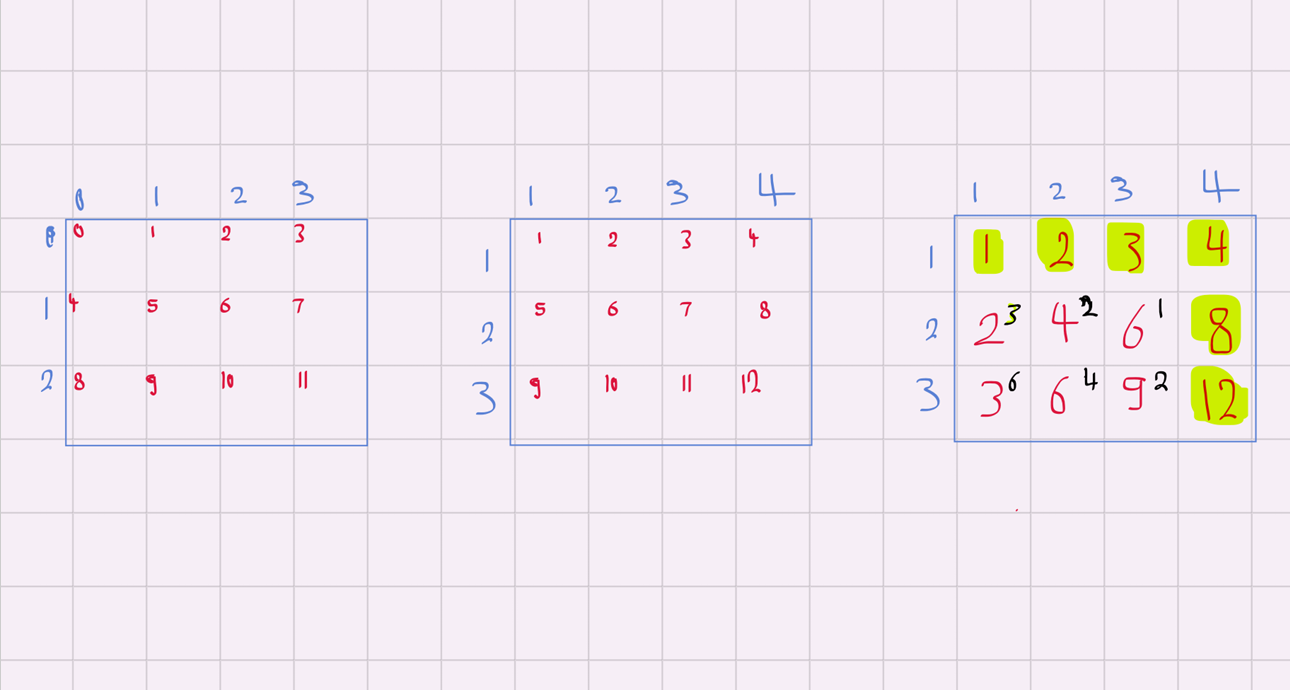 0 1 2 3
0 0 1 2 3
1 4 5 6 7
2 8 9 10 11
1 2 3 4
1 1 2 3 4
2 5 6 7 8
3 9 10 11 12
1 2 3 4
1 1 2 3 4
2 2 3 4 2 6 1 8
3 3 6 6 4 9 2 12